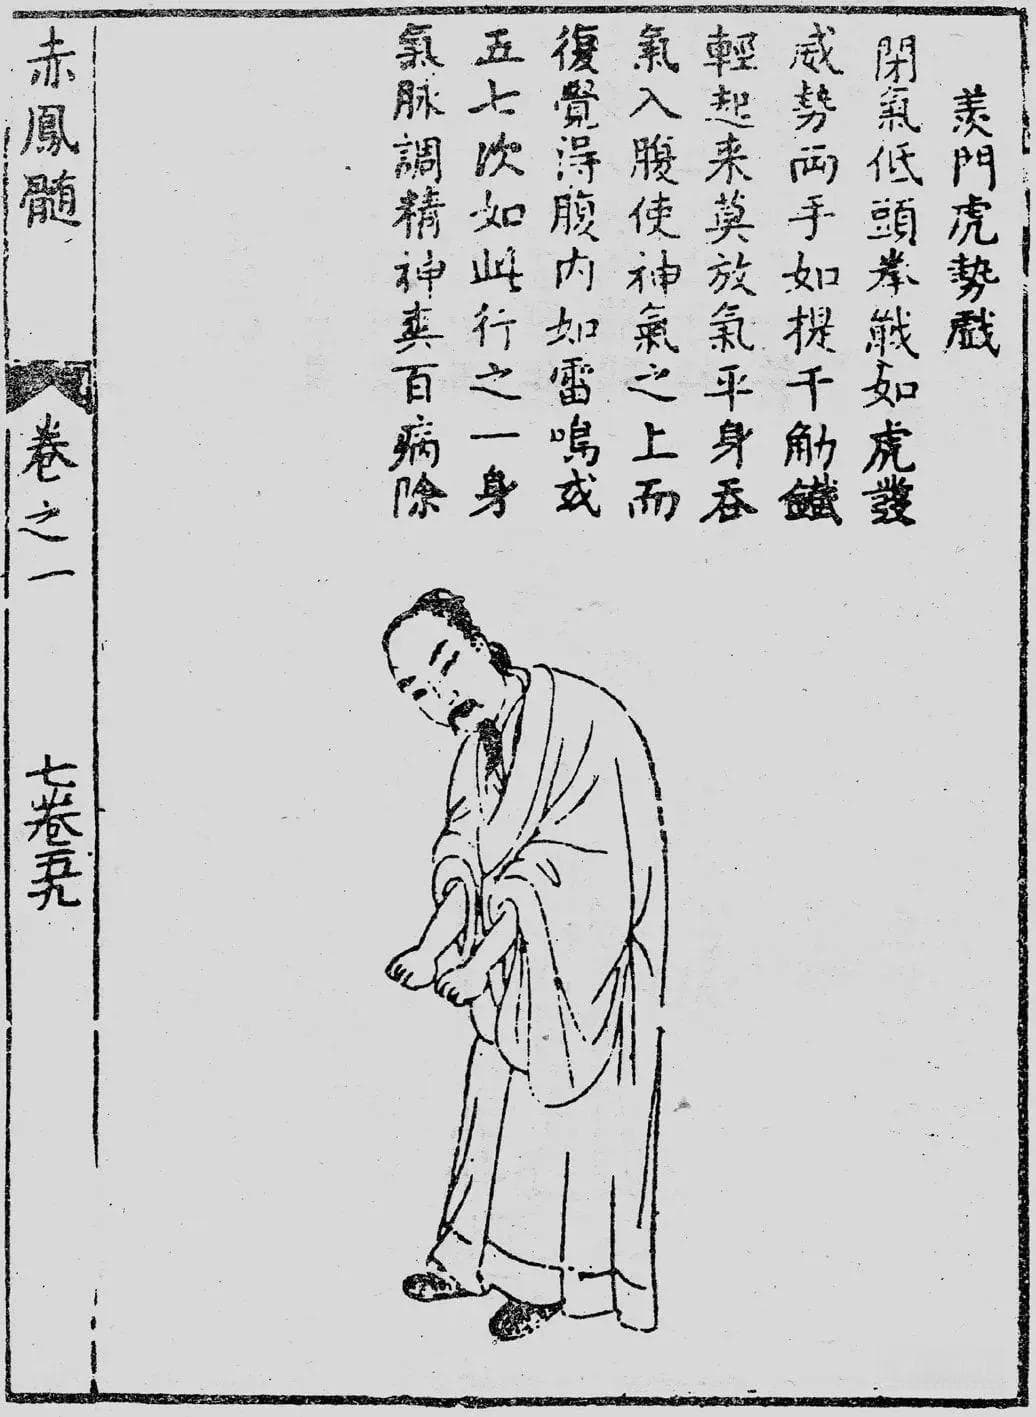 羡門虎勢戲
閉氣低頭拳戰如虎發
威勢兩手如提千觔鐵
輕起来莫放氣平身吞
氣入腹使神氣之上而
復覺得腹内如雷鳴或
五七次如此行之一身
氣脉調精神爽百病除
赤鳳髓
卷之一
七卷五九